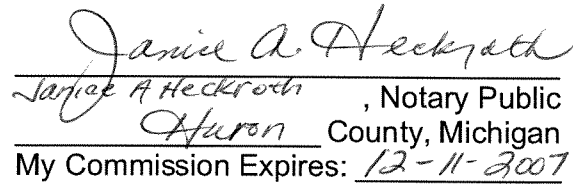 Janice A. Heckroth
Janice A Heckroth , Notary Public
Huron County, Michigan
My Commission Expires: 12-11-2007